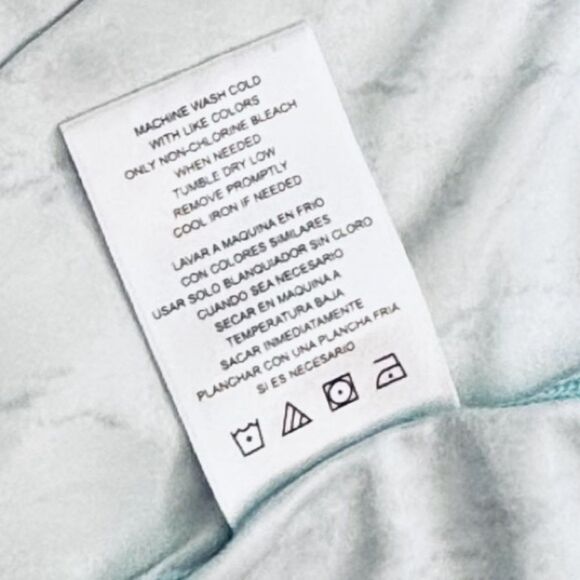 MACHINE WASH COLD
WITH LIKE COLORS
ONLY NON-CHLORINE BLEACH
WHEN NEEDED
TUMBLE DRY LOW
REMOVE PROMPTLY
COOL IRON IF NEEDED
LAVAR A MAQUINA EN FRIO
CON COLORES SIMILARES
USAR SOLO BLANQUIADOR SIN CLORO
CUANDO SEA NECESARIO
SECAR EN MAQUINA A
TEMPERATURA BAJA
SACAR INMEDIATAMENTE
PLANCHAR CON UNA PLANCHA FRIA
SI ES NECESARIO